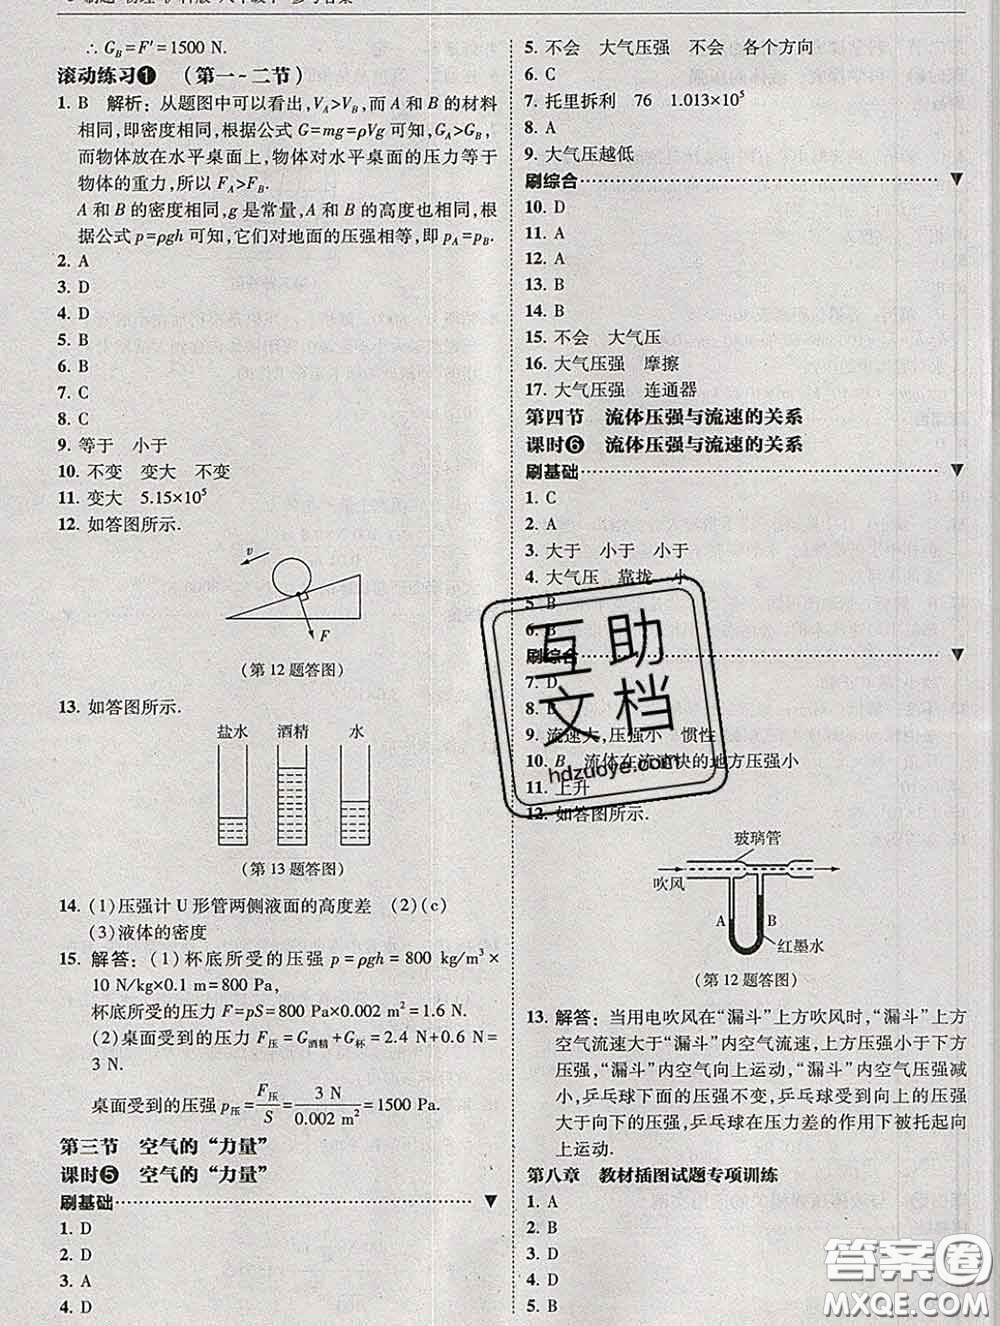 ∴ G_B=F′=1500 N.
滚动练习❶ （第一~二节）
1. B 解析：从题图中可以看出，V_A>V_B，而 A 和 B 的材料
相同，即密度相同，根据公式 G=mg=ρVg 可知，G_A>G_B，
而物体放在水平桌面上，物体对水平桌面的压力等于
物体的重力，所以 F_A>F_B.
A 和 B 的密度相同，g 是常量，A 和 B 的高度也相同，根
据公式 p=ρgh 可知，它们对地面的压强相等，即 p_A=p_B.
2. A
3. D
4. D
5. B
6. B
7. C
8. C
9. 等于 小于
10. 不变 变大 不变
11. 变大 5.15×10⁵
12. 如答图所示.
v
F
（第 12 题答图）
13. 如答图所示.
盐水 酒精 水
（第 13 题答图）
14. （1）压强计 U 形管两侧液面的高度差 （2）（c）
（3）液体的密度
15. 解答：（1）杯底所受的压强 p=ρgh=800 kg/m³×
10 N/kg×0.1 m=800 Pa，
杯底所受的压力 F=pS=800 Pa×0.002 m²=1.6 N.
（2）桌面受到的压力 F压=G酒精+G杯=2.4 N+0.6 N=
3 N.
桌面受到的压强 p压=F压/S=3 N/0.002 m²=1500 Pa.
第三节 空气的“力量”
课时❺ 空气的“力量”
刷基础
1. D
2. D
3. A
4. D
5. 不会 大气压强 不会 各个方向
6. C
7. 托里拆利 76 1.013×10⁵
8. A
9. 大气压越低
刷综合
10. D
11. B
12. B
13. B
14. B
15. 不会 大气压
16. 大气压强 摩擦
17. 大气压强 连通器
第四节 流体压强与流速的关系
课时❻ 流体压强与流速的关系
刷基础
1. C
2. A
3. 大于 小于 小于
4. 大气压 靠拢 小
5. B
6. B
刷综合
7. D
8. D
9. 流速大，压强小 惯性
10. B 流体在流速快的地方压强小
11. 上升
12. 如答图所示.
玻璃管
吹风
A B
红墨水
（第 12 题答图）
13. 解答：当用电吹风在“漏斗”上方吹风时，“漏斗”上方
空气流速大于“漏斗”内空气流速，上方压强小于下方
压强，“漏斗”内空气向上运动，“漏斗”内空气压强减
小，乒乓球下面的压强不变，乒乓球上下方的压强
大于向下的压强，乒乓球在压力差的作用下被托起向
上运动.
第八章 教材插图试题专项训练
1. A
2. B
3. D
4. D
5. B
互助
文档
hdzuoye.com
答案卷
MXQE.COM